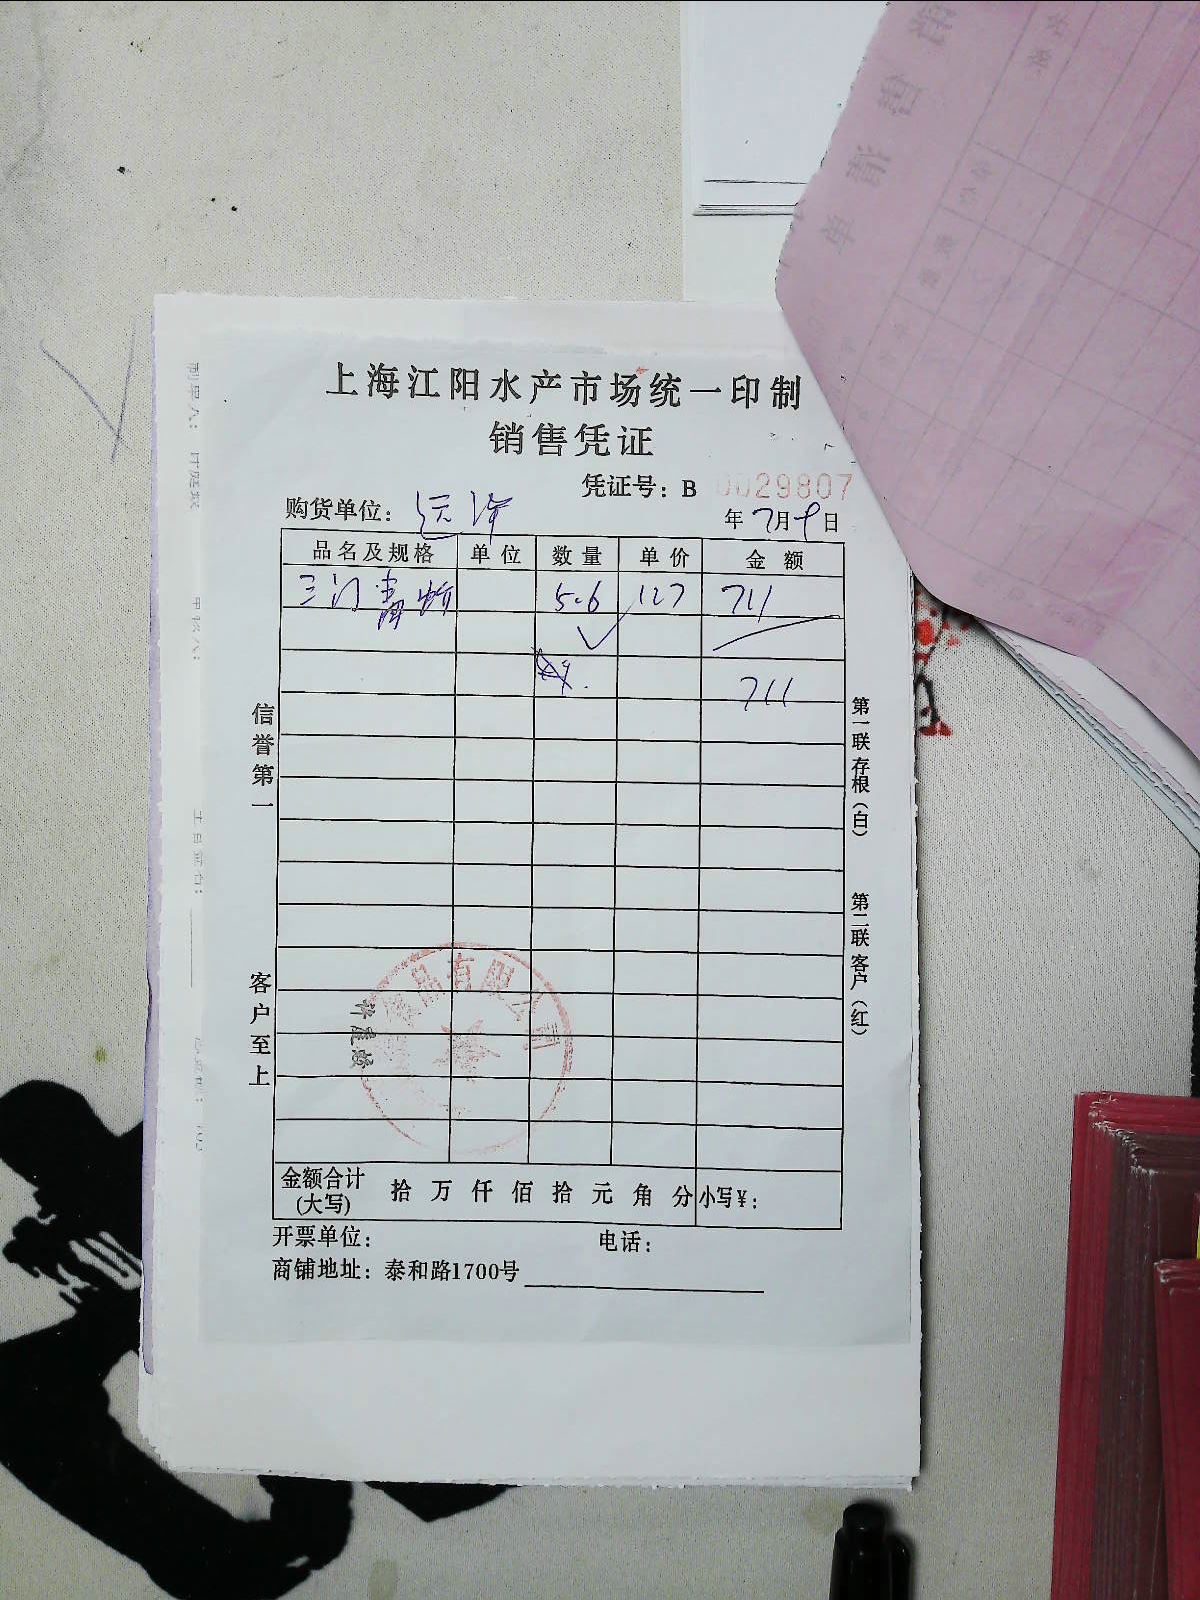 上海江阳水产市场统一印制
销售凭证
凭证号：B 0029807
购货单位：远洋
年7月9日
品名及规格 单位 数量 单价 金额
三门青蚧 5.6 127 711
711
信誉第一
客户至上
第一联存根（白）
第二联客户（红）
食品有限公司
许廷敏
金额合计(大写) 拾 万 仟 佰 拾 元 角 分 小写¥：
开票单位： 电话：
商铺地址：泰和路1700号